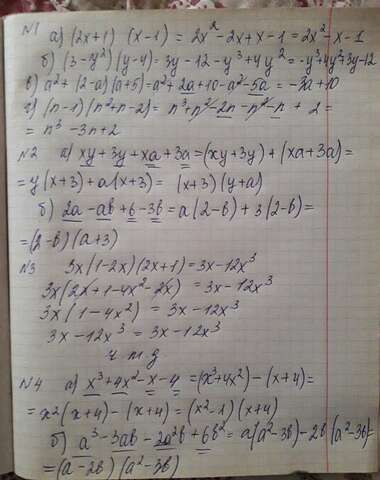 N1 а) (2x+1) (x-1) = 2x²-2x+x-1=2x²-x-1
б) (3-y²)(y-4)=3y-12-y³+4y²=-y³+4y²+3y-12
в) a²+(2-a)(a+5)=a²+2a+10-a²-5a=-3a+10
г) (n-1)(n²+n-2)= n³+n²-2n-n²-n+2=
= n³-3n+2
N2 а) xy+3y+xa+3a=(xy+3y)+(xa+3a)=
=y(x+3)+a(x+3)= (x+3)(y+a)
б) 2a-ab+6-3b=a(2-b)+3(2-b)=
=(2-b)(a+3)
N3 3x(1-2x)(2x+1)=3x-12x³
3x(2x+1-4x²-2x) =3x-12x³
3x(1-4x²) = 3x-12x³
3x-12x³ = 3x-12x³
ч т д
N4 а) x³+4x²-x-4=(x³+4x²)-(x+4)=
=x²(x+4)-(x+4)=(x²-1)(x+4)
б) a³-3ab-2a²b+6b²=a(a²-3b)-2b(a²-3b)
=(a-2b)(a²-3b)